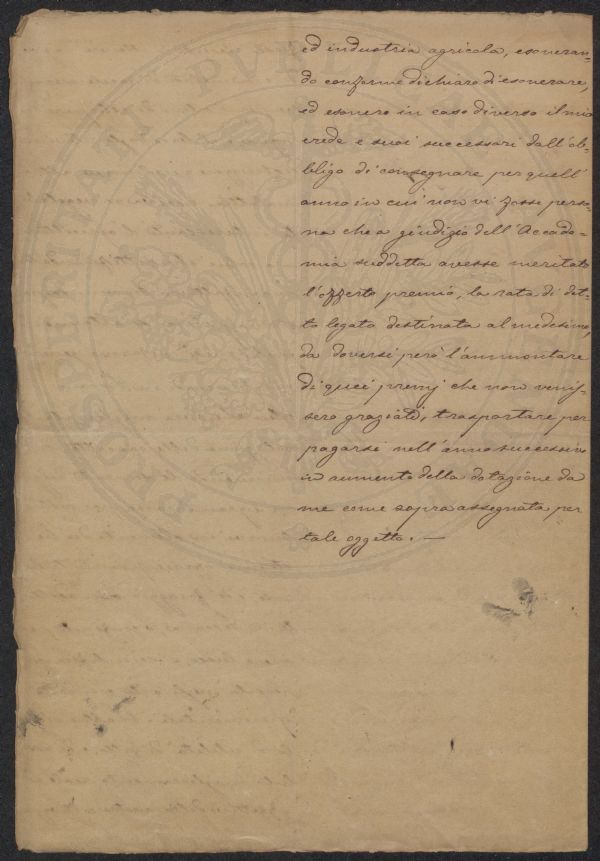 ed industria agricola, esoneran-
do conforme dichiaro di esonerare,
ed esonero in caso diverso il mio
erede e suoi successori dall'ob-
bligo di consegnare per quell'
anno in cui non vi fosse perso-
na che a giudizio dell'Accade-
mia suddetta avesse meritato
l'offerto premio, la rata di det-
to legato destinata al medesimo,
da doversi però l'ammontare
di quei premj che non venis-
sero graziati, trasportare per
pagarsi nell'anno successivo
in aumento della dotazione da
me come sopra assegnata per
tale oggetto. —